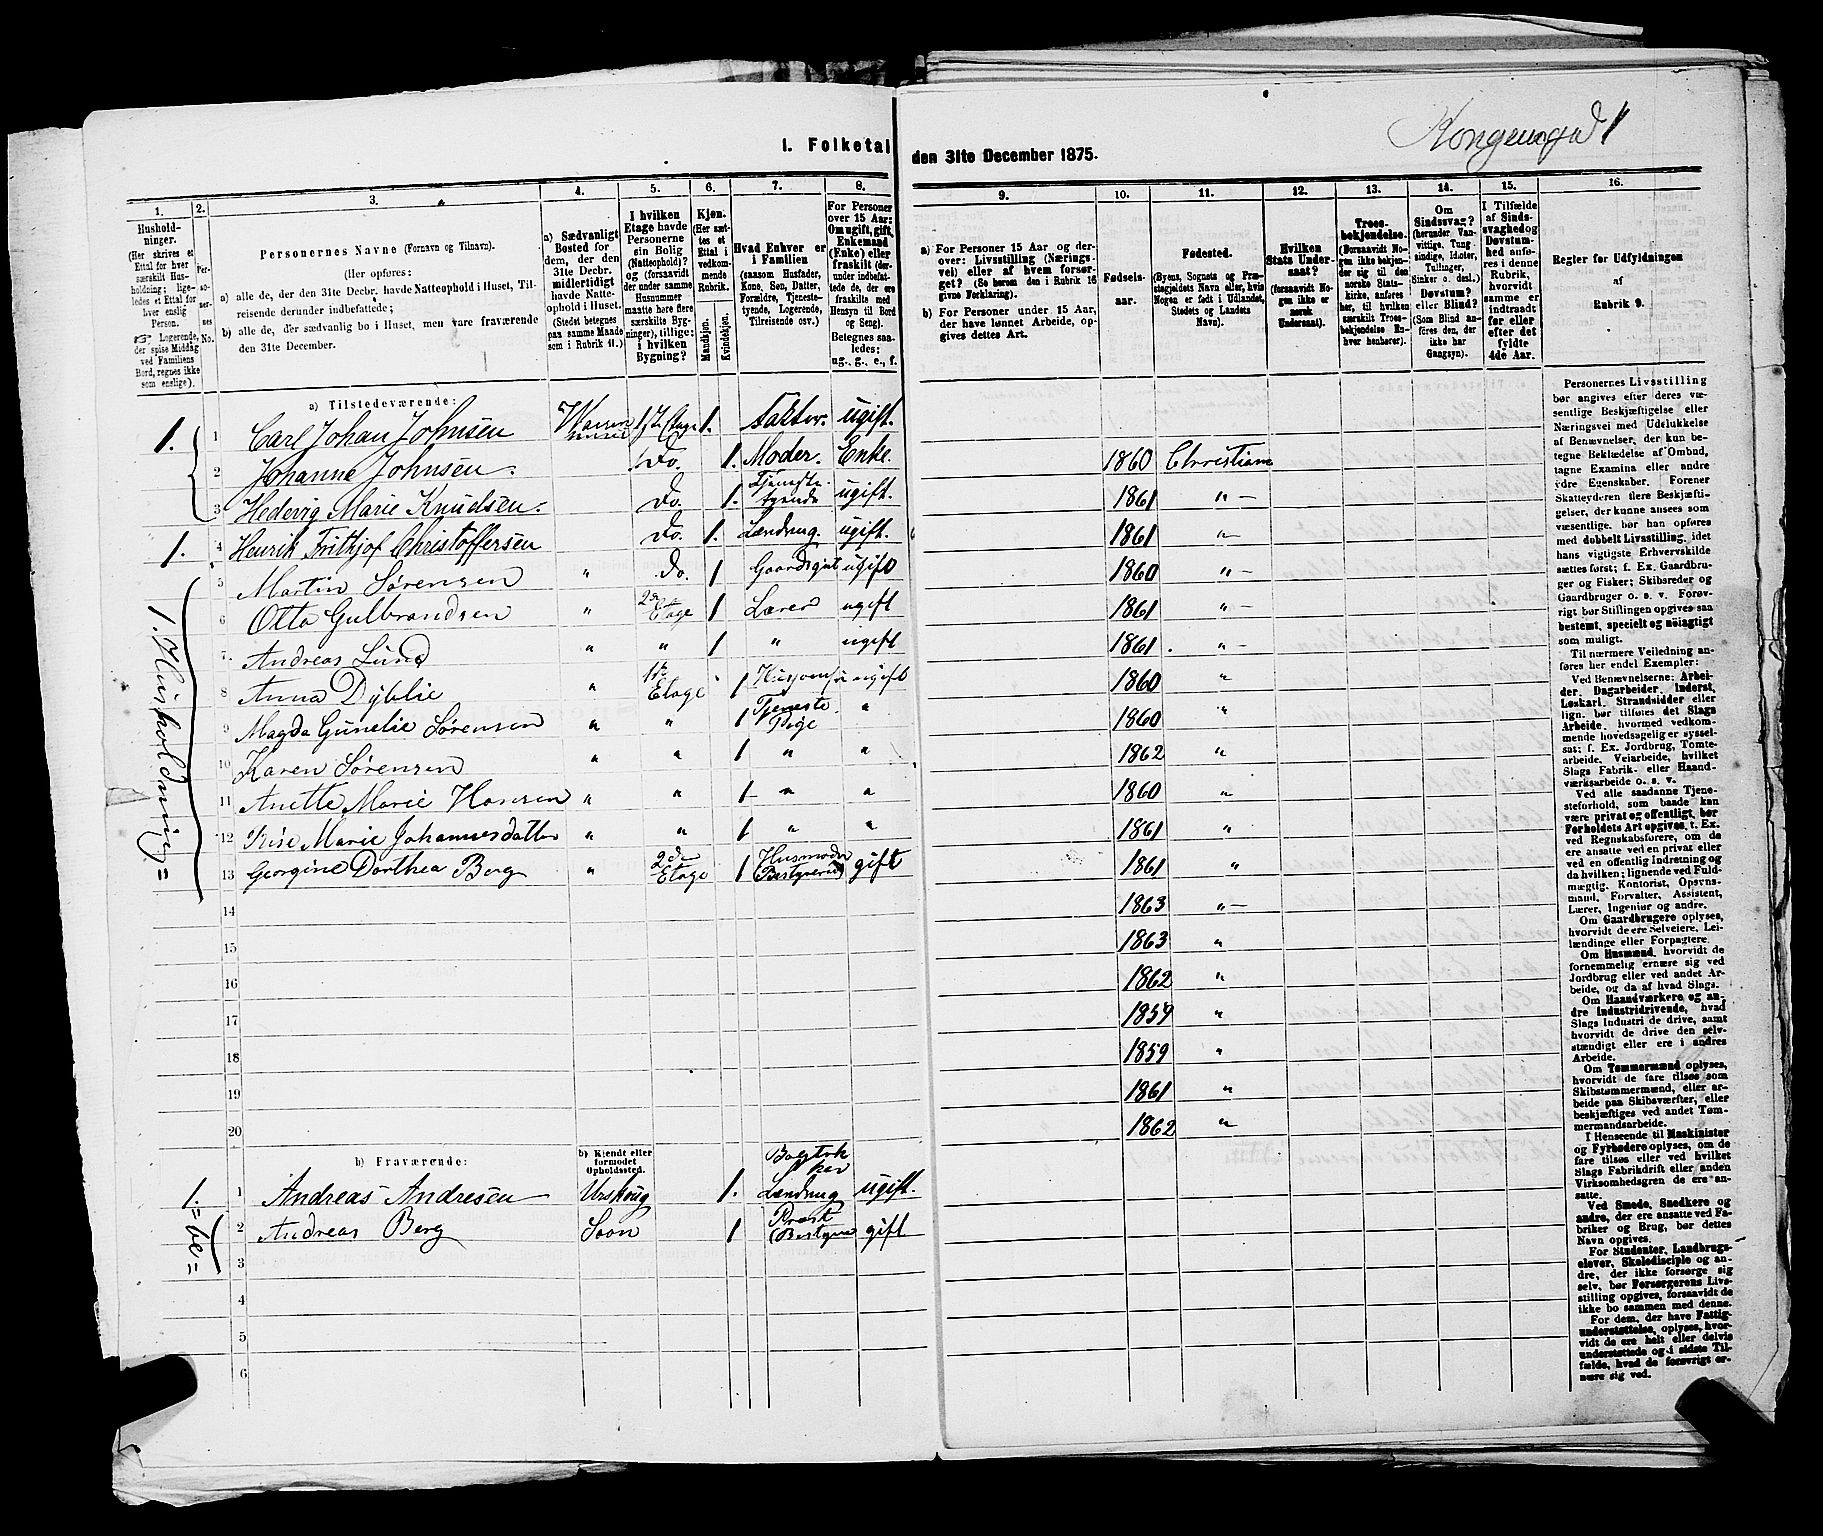 I. Folketal den 31te December 1875.
1. 2. 3. 4. 5. 6. 7. 8.
Hushold-
ninger.
(Her skrives et
Ettal for hver
særskilt Hus-
holdning; lige-
ledes et Ettal for
hver enslig
Person.
Logerende,
der spise Middag
ved Familiens
Bord, regnes ikke
som enslige).
Personernes Navne (Fornavn og Tilnavn).
(Her opføres:
a) alle de, der den 31te Decbr. havde Natteophold i Huset, Til-
reisende derunder indbefattede;
b) alle de, der sædvanlig bo i Huset, men vare fraværende
den 31te December.
a) Sædvanligt
Bosted for
dem, der den
31te Decbr.
midlertidigt
havde Natte-
ophold i Huset.
(Stedet betegnes
paa samme Maade
som i Rubrik 11.)
I hvilken
Etage havde
Personerne
sin Bolig
(Natteophold)?
og (forsaavidt
der under samme
Husnummer
maatte høre flere
særskilte Byg-
ninger), tillige:
i hvilken
Bygning?
Kjøn.
(Her sæt-
tes et
Ettal i
vedkom-
mende
Rubrik.
Mandkjøn.
Kvindekjøn.
Hvad Enhver er
i Familien
(saasom Husfader,
Kone, Søn, Datter,
Forældre, Tjeneste-
tyende, Logerende,
Tilreisende osv.)
For Personer
over 15 Aar:
Om ugift, gift,
Enkemand
(Enke) eller
fraskilt (der-
under indbefat-
tede de, der ere
fraskilte med
Hensyn til Bord
og Seng).
Betegnes saa-
ledes:
ug., g., e., f.
a) Tilstedeværende:
1. 1 Carl Johan Johnsen 1. Faktor. ugift.
2 Johanne Johnsen. Do. 1. Moder. Enke.
3 Hedevig Marie Knudsen. Do. 1. ugift.
1. 4 Henrik Frithjof Christoffersen Do. 1. ugift.
1. Husholdning =
5 Martin Sørensen " Do. 1 ugift
6 Otto Gulbrandsen " 2den Etage 1 Lærer ugift
7. Andreas Lund " " 1 " ugift
8 Anna Dyblie " 1ste Etage 1 ugift
9 Magda Gunelie Sørensen " " 1 Tjeneste Pige "
10 Karen Sørensen " " 1 " "
11 Anette Marie Hansen " " 1 " "
12 Marie Johannesdatter " " 1 " "
13 Georgine Dorthea Berg " 2de Etage 1 Husmoder Bestyrerinde gift
14
15
16
17
18
19
20
b) Fraværende:
b) Kjendt eller
formodet
Opholdssted.
1. 1 Andreas Andresen Urskoug 1. ugift.
2 Andreas Berg Soon 1 gift
3
4
5
6
Kongensgad 1
9. 10. 11. 12. 13. 14. 15. 16.
a) For Personer 15 Aar og der-
over: Livsstilling (Nærings-
vei) eller af hvem forsør-
get? (Se herom den i Rubrik 16
givne Forklaring).
b) For Personer under 15 Aar,
der have lønnet Arbeide, op-
gives dettes Art.
Fødsels-
aar.
Fødested.
(Byens, Sognets og Præ-
stegjeldets Navn eller, hvis
Nogen er født i Udlandet,
Stedets og Landets
Navn).
Hvilken
Stats Under-
saat?
(forsaavidt No-
gen ikke er
norsk
Undersaat).
Troes-
bekjendelse.
(Forsaavidt No-
gen ikke bekjen-
der sig til den
norske Stats-
kirke, anføres
her, til hvilken
særskilt Troes-
bekjendelse En-
hver henhører).
Om
Sindssvag?
(herunder Van-
vittige, Tung-
sindige, Idioter,
Tullinger,
Sinker o. desl.)
Døvstum?
eller Blind?
(Som Blind an-
føres den, der
ikke har
Gangsyn).
I Tilfælde
af Sinds-
svaghed og
Døvstum-
hed anfø-
res i denne
Rubrik,
hvorvidt
samme er
indtraadt
før eller
efter det
fyldte
4de Aar.
Regler for Udfyldningen
af
Rubrik 9.
1860 Christiania
1861 " —
1861 " —
1860 " —
1861 " —
1861. " —
1860 "
1860 "
1862 "
1860 "
1861 "
1861 "
1863 " —
1863 "
1862 "
1859 "
1859 "
1861 "
1862 "
Personernes Livsstilling
bør angives efter deres væ-
sentlige Beskjæftigelse eller
Næringsvei med Udelukkelse
af Benævnelser, der kun be-
tegne Beklædelse af Ombud,
tagne Examina eller andre
ydre Egenskaber. Forener
Skatteyderen flere Beskjæfti-
gelser, der kunne ansees som
væsentlige, bør han opføres
med dobbelt Livsstilling, idet
hans vigtigste Erhvervskilde
sættes først; f. Ex. Gaardbru-
ger og Fisker; Skibsreder og
Gaardbruger o. s. v. Forøv-
rigt bør Stillingen opgives saa
bestemt, specielt og nøiagtigt
som muligt.
Til nærmere Veiledning an-
føres her endel Exempler:
Ved Benævnelserne: Arbei-
der, Dagarbeider, Inderst,
Løskarl, Strandsidder eller
lign. bør tilføies det Slags
Arbeide, hvormed vedkom-
mende hovedsagelig er syssel-
sat; f. Ex. Jordbrug, Tomte-
arbeide, Veiarbeide, hvilket
Slags Fabrik- eller Haand-
værksarbeide o. s. v.
Ved alle saadanne Tjene-
steforhold, som baade kan
være privat og offentligt, bør
Forholdets Art opgives, f. Ex.
ved Regnskabsførere, om de
ere ansatte ved en privat eller
ved en offentlig Indretning og
da hvilken; lignende ved Fuld-
mægtig, Kontorist, Opsyns-
mand, Forvalter, Assistent,
Lærer, Ingeniør og andre.
Om Gaardbrugere oplyses,
hvorvidt de ere Selveiere, Lei-
lændinge eller Forpagtere.
Om Husmænd, hvorvidt de
fornemmelig ernære sig ved
Jordbrug eller ved andet Ar-
beide, og da af hvad Slags.
Om Haandværkere og an-
dre Industridrivende, hvad
Slags Industri de drive, samt
hvorvidt de drive den selv-
stændigt eller ere i andres
Arbeide.
Om Tømmermænd oplyses,
hvorvidt de fare tilsøs som
Skibstømmermænd, eller ar-
beide paa Skibsværfter, eller
beskjæftiges ved andet Tøm-
mermandsarbeide.
I Henseende til Maskinister
og Fyrbødere oplyses, om de
fare tilsøs eller ved hvilket
Slags Fabrikdrift eller anden
Virksomhedsgren de ere an-
satte.
Ved Smede, Snedkere og
andre, der ere ansatte ved Fa-
briker og Brug, bør dettes
Navn opgives.
For Studenter, Landbrugs-
elever, Skoledisciple og an-
dre, der ikke forsørge sig
selv, bør Forsørgerens Livs-
stilling opgives, forsaavidt de
ikke bo sammen med denne.
For dem, der have Fattig-
understøttelse, oplyses, hvor-
vidt de ere helt eller delvis
understøttede og i sidste Til-
fælde, hvad de forøvrigt er-
nære sig ved.